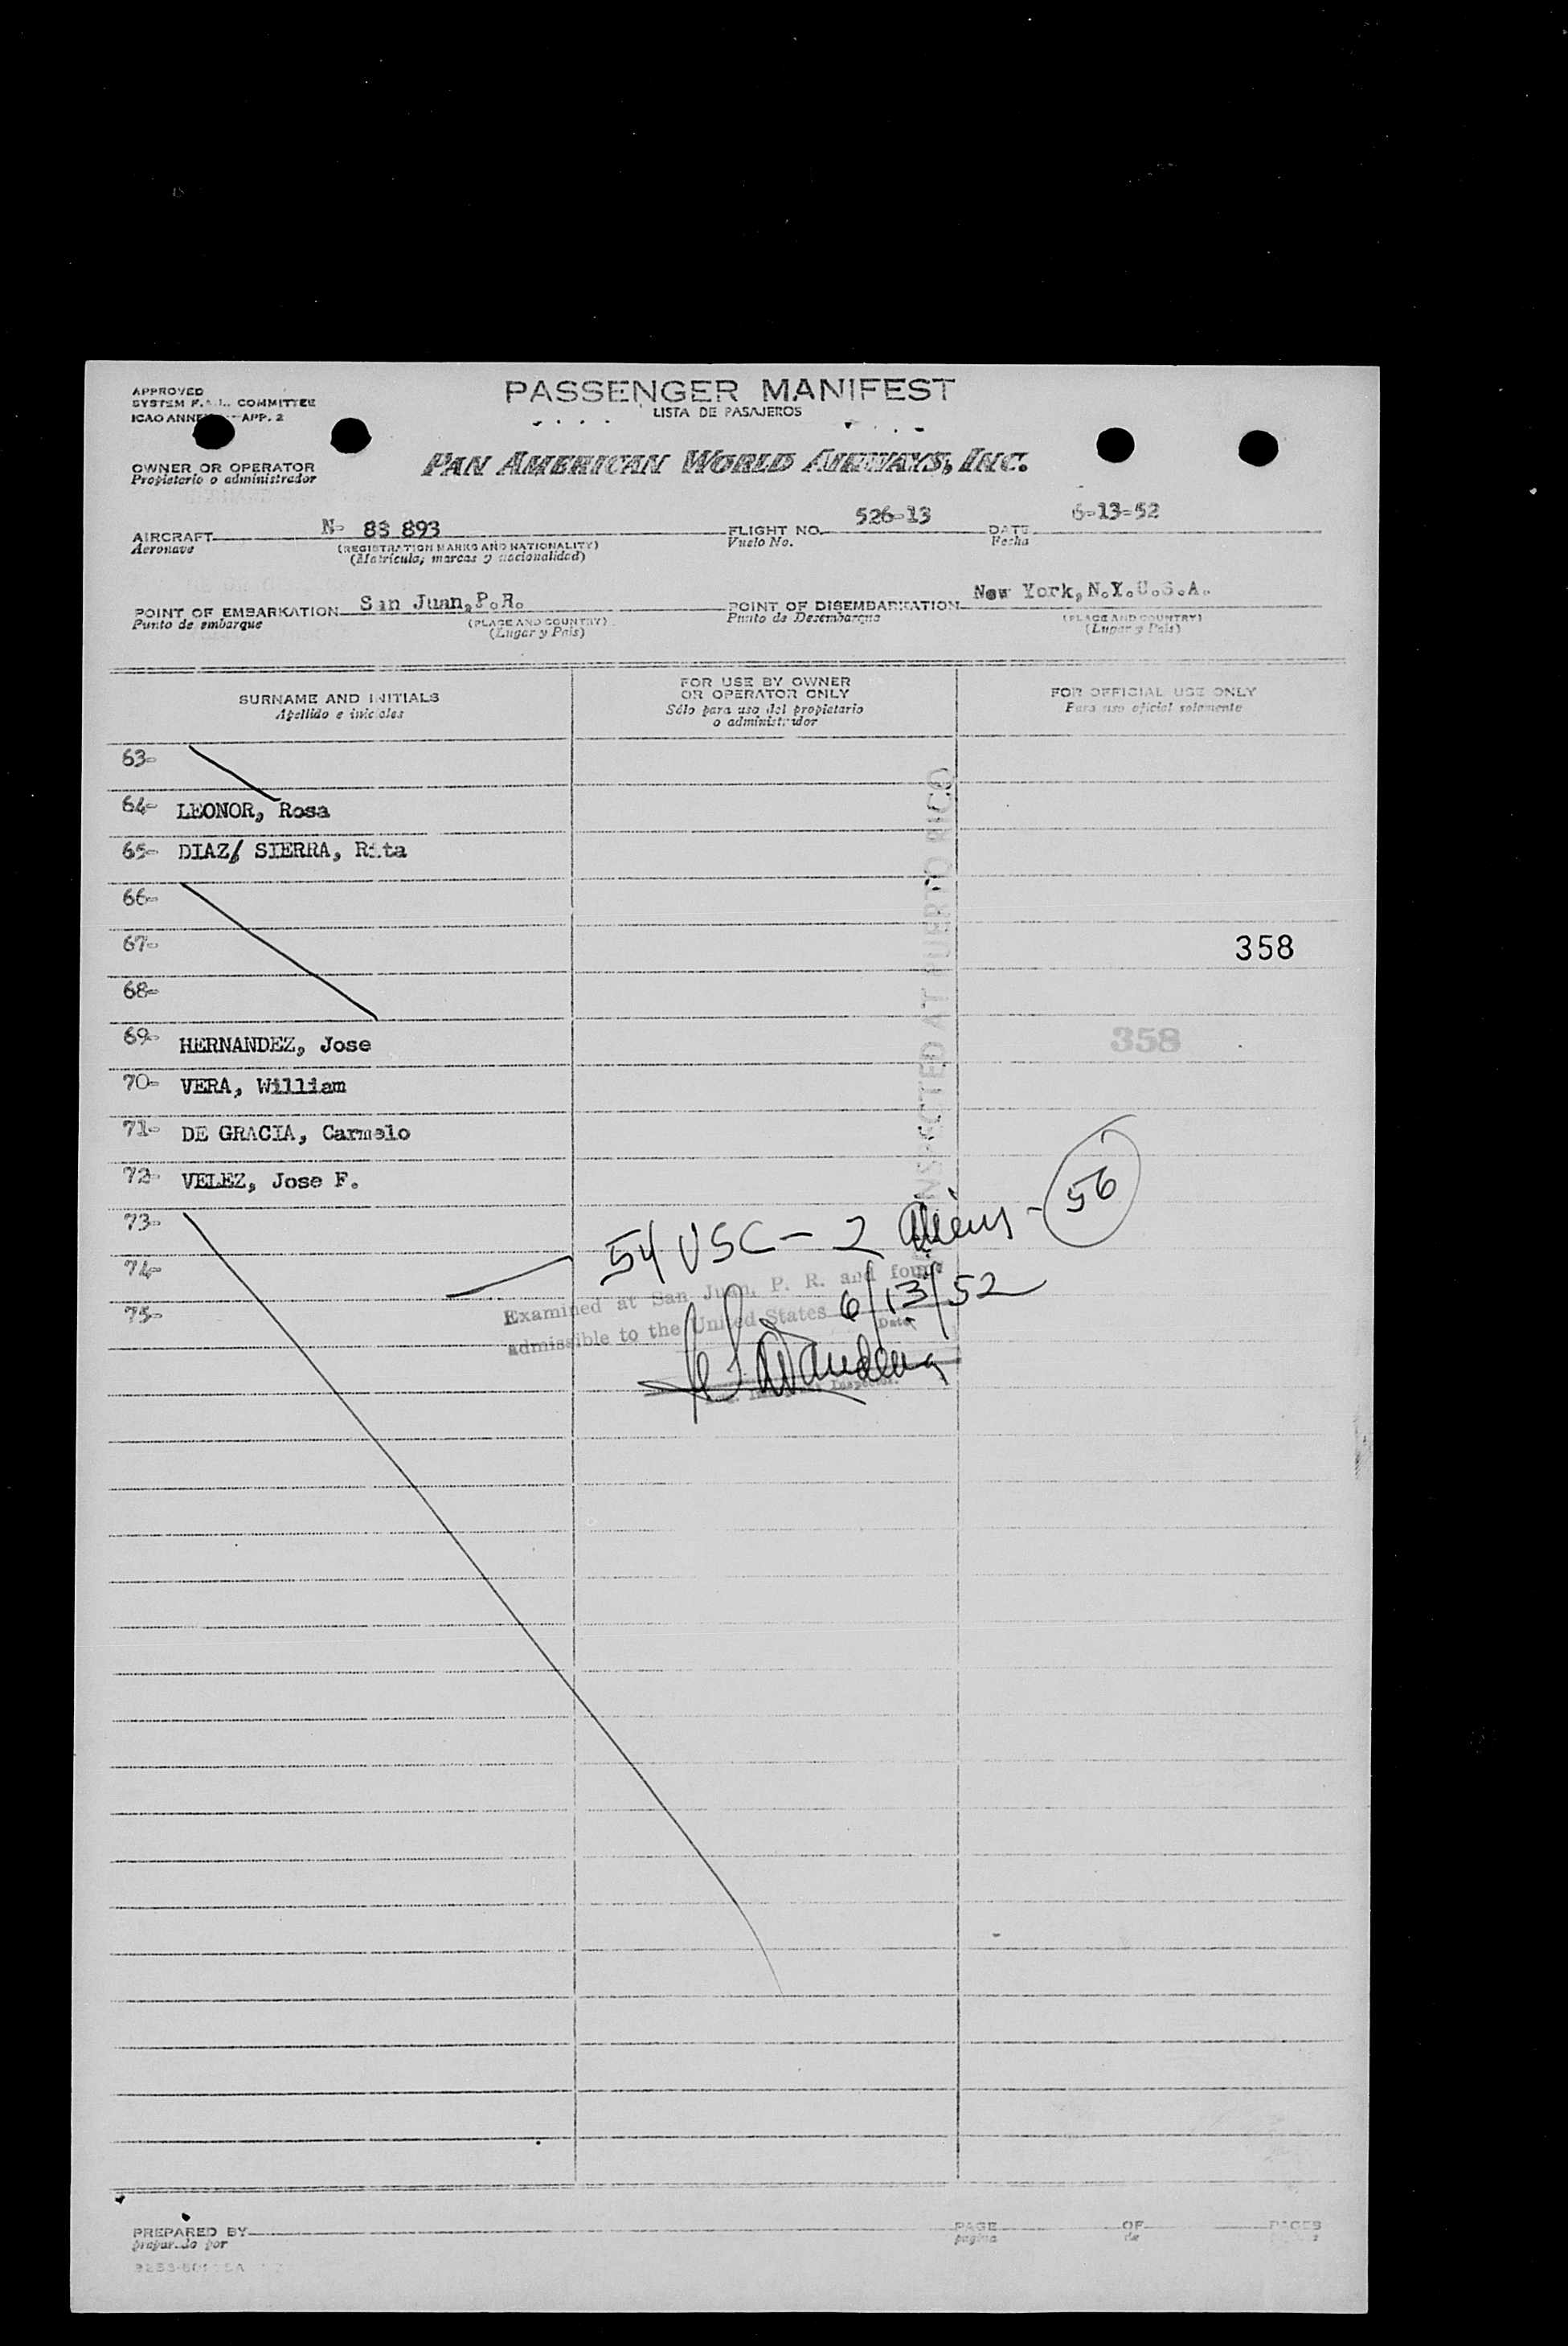 APPROVED
SYSTEM F.A.L. COMMITTEE
ICAO ANNEX APP. 2
PASSENGER MANIFEST
LISTA DE PASAJEROS
OWNER OR OPERATOR
Propietario o administrador
PAN AMERICAN WORLD AIRWAYS, INC.
AIRCRAFT N- 88 893 FLIGHT NO. 526-13 DATE 6-13-52
Aeronave (REGISTRATION MARKS AND NATIONALITY) Vuelo No. Fecha
(Matricula, marcas y nacionalidad)
POINT OF EMBARKATION San Juan, P.R. POINT OF DISEMBARKATION New York, N.Y. U.S.A.
Punto de embarque (PLACE AND COUNTRY) Punto de Desembarque (PLACE AND COUNTRY)
(Lugar y Pais) (Lugar y Pais)
SURNAME AND INITIALS
Apellido e iniciales
FOR USE BY OWNER
OR OPERATOR ONLY
Sólo para uso del propietario
o administrador
FOR OFFICIAL USE ONLY
Para uso oficial solamente
63-
64- LEONOR, Rosa
65- DIAZ/ SIERRA, Rita
66-
67-
358
68-
69- HERNANDEZ, Jose
358
70- VERA, William
71- DE GRACIA, Carmelo
72- VELEZ, Jose F.
73-
74-
75-
INSPECTED AT PUERTO RICO
54 USC - 2 Aliens - 56
Examined at San Juan, P. R. and found
admissible to the United States 6/13/52
Date
Inspector.
PREPARED BY PAGE OF PAGES
preparado por pagina de